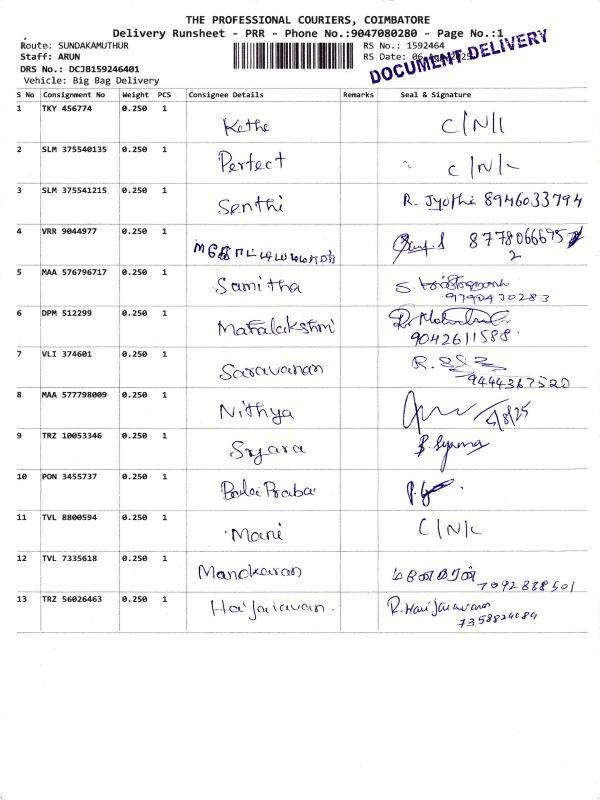 THE PROFESSIONAL COURIERS, COIMBATORE
Delivery Runsheet - PRR - Phone No.:9047080280 - Page No.:1
Route: SUNDAKAMUTHUR RS No.: 1592464
Staff: ARUN RS Date: 06-Aug-2025
DOCUMENT DELIVERY
DRS No.: DCJB159246401
Vehicle: Big Bag Delivery
S No Consignment No Weight PCS Consignee Details Remarks Seal & Signature
1 TKY 456774 0.250 1 Kethe C/N/L
2 SLM 375540135 0.250 1 Perfect C/N/L
3 SLM 375541215 0.250 1 Senthi R. Jyothi 8946033794
4 VRR 9044977 0.250 1
5 MAA 576796717 0.250 1 Samitha 9790430283
6 DPM 512299 0.250 1 Mahalakshmi 9042611588
7 VLI 374601 0.250 1 Saravanan 9444367520
8 MAA 577798009 0.250 1 Nithya
9 TRZ 10053346 0.250 1
10 PON 3455737 0.250 1 Bala Praba
11 TVL 8800594 0.250 1 Mani C/N/L
12 TVL 7335618 0.250 1 Manokaran மனோகரன் 7092888501
13 TRZ 56026463 0.250 1 R. Hari Jaiavan 7358824084